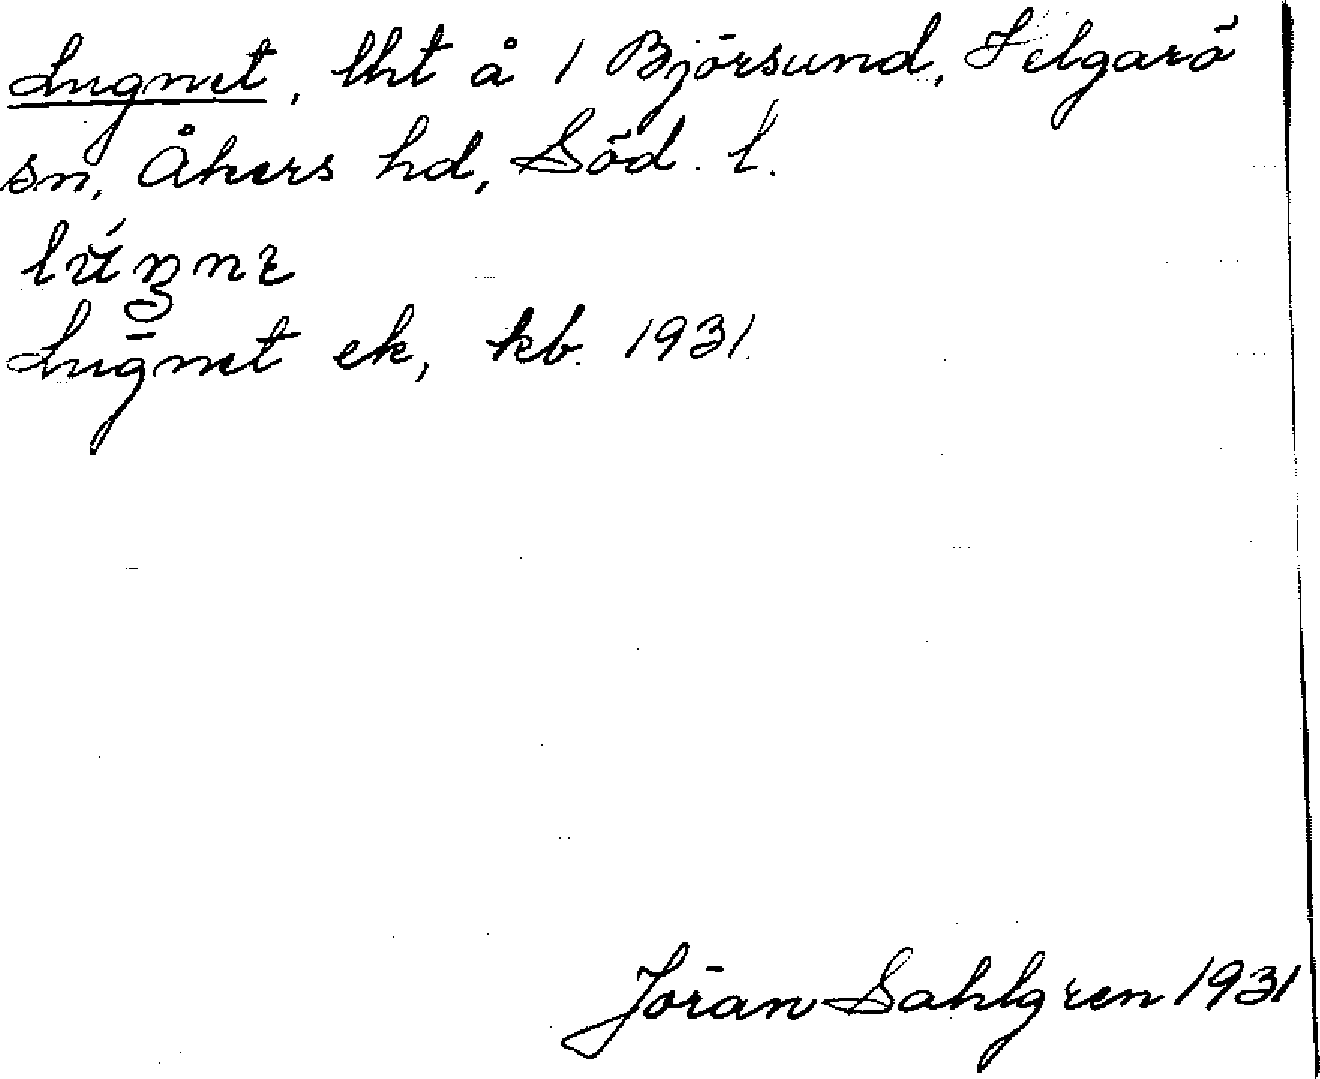 Lugnet, lht å 1 Björsund, Helgarö
sn, Åkers hd, Söd. l.
Lugnet ek, kb. 1931.
Jöran Sahlgren 1931